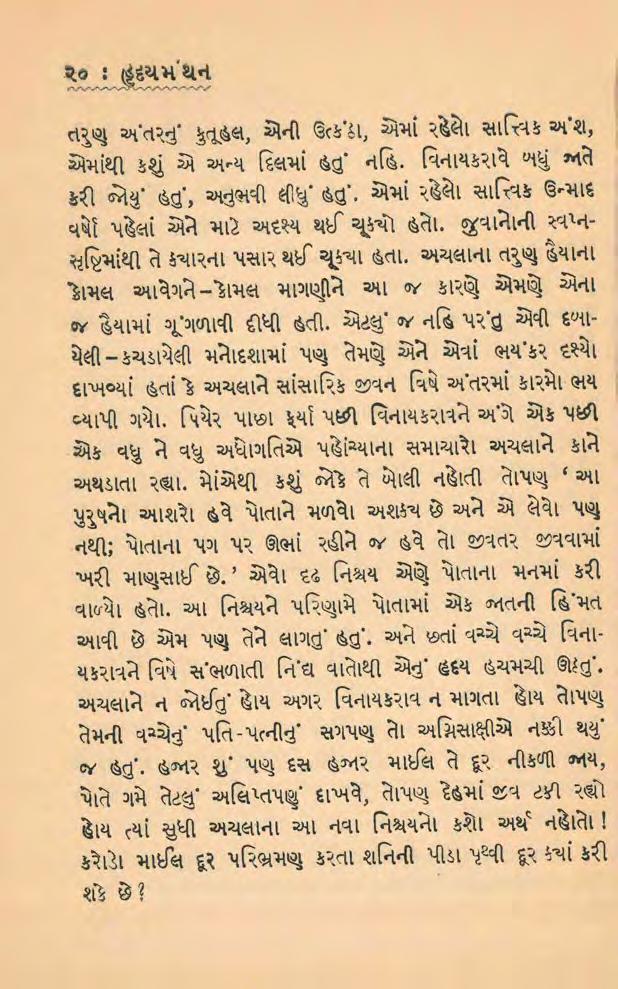 ૨૦ : હૃદયમંથન
તરુણ અંતરનું કુતૂહલ, એની ઉત્કંઠા, એમાં રહેલો સાત્ત્વિક અંશ,
એમાંથી કશું એ અન્ય દિલમાં હતું નહિ. વિનાયકરાવે બધું જાતે
કરી જોયું હતું, અનુભવી લીધું હતું. એમાં રહેલો સાત્ત્વિક ઉન્માદ
વર્ષો પહેલાં એને માટે અદૃશ્ય થઈ ચૂક્યો હતો. જુવાનોની સ્વપ્ન-
સૃષ્ટિમાંથી તે ક્યારના પસાર થઈ ચૂક્યા હતા. અચલાના તરુણ હૈયાના
કોમલ આવેગને–કોમલ માગણીને આ જ કારણે એમણે એના
જ હૈયામાં ગૂંગળાવી દીધી હતી. એટલું જ નહિ પરંતુ એવી દબા-
યેલી–કચડાયેલી મનોદશામાં પણ તેમણે એને એવાં ભયંકર દૃશ્યો
દાખવ્યાં હતાં કે અચલાને સાંસારિક જીવન વિષે અંતરમાં કારમો ભય
વ્યાપી ગયો. પિયેર પાછા ફર્યા પછી વિનાયકરાવને અંગે એક પછી
એક વધુ ને વધુ અધોગતિએ પહોંચ્યાના સમાચારો અચલાને કાને
અથડાતા રહ્યા. મોંએથી કશું જોકે તે બોલી નહોતી તોપણ ‘ આ
પુરુષનો આશરો હવે પોતાને મળવો અશક્ય છે અને એ લેવો પણ
નથી; પોતાના પગ પર ઊભાં રહીને જ હવે તો જીવતર જીવવામાં
ખરી માણસાઈ છે.’ એવો દૃઢ નિશ્ચય એણે પોતાના મનમાં કરી
વાળ્યો હતો. આ નિશ્ચયને પરિણામે પોતામાં એક જાતની હિંમત
આવી છે એમ પણ તેને લાગતું હતું. અને છતાં વચ્ચે વચ્ચે વિના-
યકરાવને વિષે સંભળાતી નિંદ્ય વાતોથી એનું હૃદય હચમચી ઊઠતું.
અચલાને ન જોઈતું હોય અગર વિનાયકરાવ ન માગતા હોય તોપણ
તેમની વચ્ચેનું પતિ-પત્નીનું સગપણ તો અગ્નિસાક્ષીએ નક્કી થયું
જ હતું. હજાર શું પણ દસ હજાર માઈલ તે દૂર નીકળી જાય,
પોતે ગમે તેટલું અલિપ્તપણું દાખવે, તોપણ દેહમાં જીવ ટકી રહ્યો
હોય ત્યાં સુધી અચલાના આ નવા નિશ્ચયનો કશો અર્થ નહોતો!
કરોડો માઈલ દૂર પરિભ્રમણ કરતા શનિની પીડા પૃથ્વી દૂર ક્યાં કરી
શકે છે?